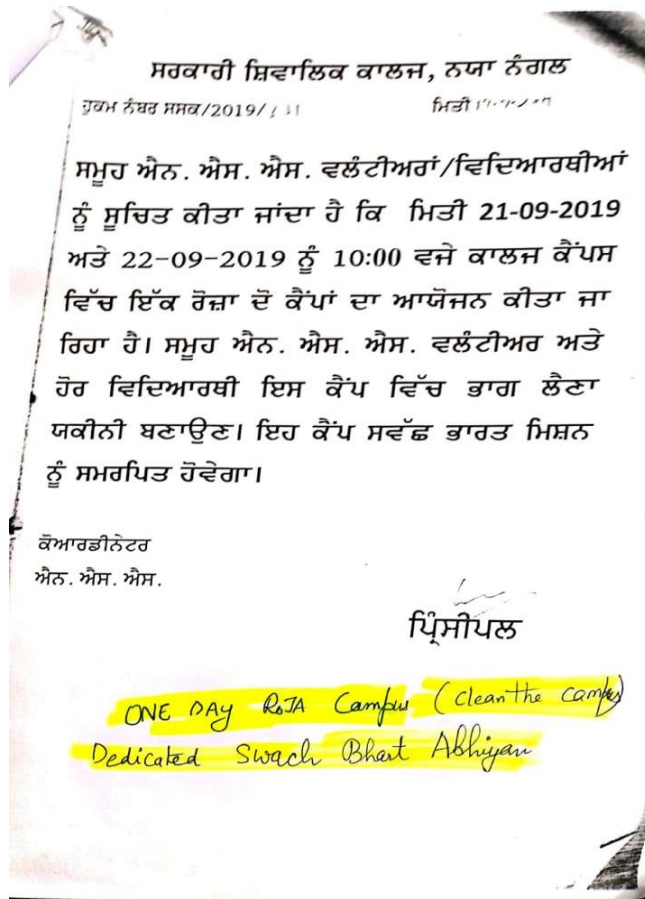 ਸਰਕਾਰੀ ਸ਼ਿਵਾਲਿਕ ਕਾਲਜ, ਨਯਾ ਨੰਗਲ
ਹੁਕਮ ਨੰਬਰ ਸਸਕ/2019/ ਮਿਤੀ
ਸਮੂਹ ਐਨ. ਐਸ. ਐਸ. ਵਲੰਟੀਅਰਾਂ/ਵਿਦਿਆਰਥੀਆਂ
ਨੂੰ ਸੂਚਿਤ ਕੀਤਾ ਜਾਂਦਾ ਹੈ ਕਿ ਮਿਤੀ 21-09-2019
ਅਤੇ 22-09-2019 ਨੂੰ 10:00 ਵਜੇ ਕਾਲਜ ਕੈਂਪਸ
ਵਿੱਚ ਇੱਕ ਰੋਜ਼ਾ ਦੋ ਕੈਂਪਾਂ ਦਾ ਆਯੋਜਨ ਕੀਤਾ ਜਾ
ਰਿਹਾ ਹੈ। ਸਮੂਹ ਐਨ. ਐਸ. ਐਸ. ਵਲੰਟੀਅਰ ਅਤੇ
ਹੋਰ ਵਿਦਿਆਰਥੀ ਇਸ ਕੈਂਪ ਵਿੱਚ ਭਾਗ ਲੈਣਾ
ਯਕੀਨੀ ਬਣਾਉਣ। ਇਹ ਕੈਂਪ ਸਵੱਛ ਭਾਰਤ ਮਿਸ਼ਨ
ਨੂੰ ਸਮਰਪਿਤ ਹੋਵੇਗਾ।
ਕੋਆਰਡੀਨੇਟਰ
ਐਨ. ਐਸ. ਐਸ.
ਪ੍ਰਿੰਸੀਪਲ
ONE DAY ROJA Campus (clean the campus)
Dedicated Swach Bhart Abhiyan